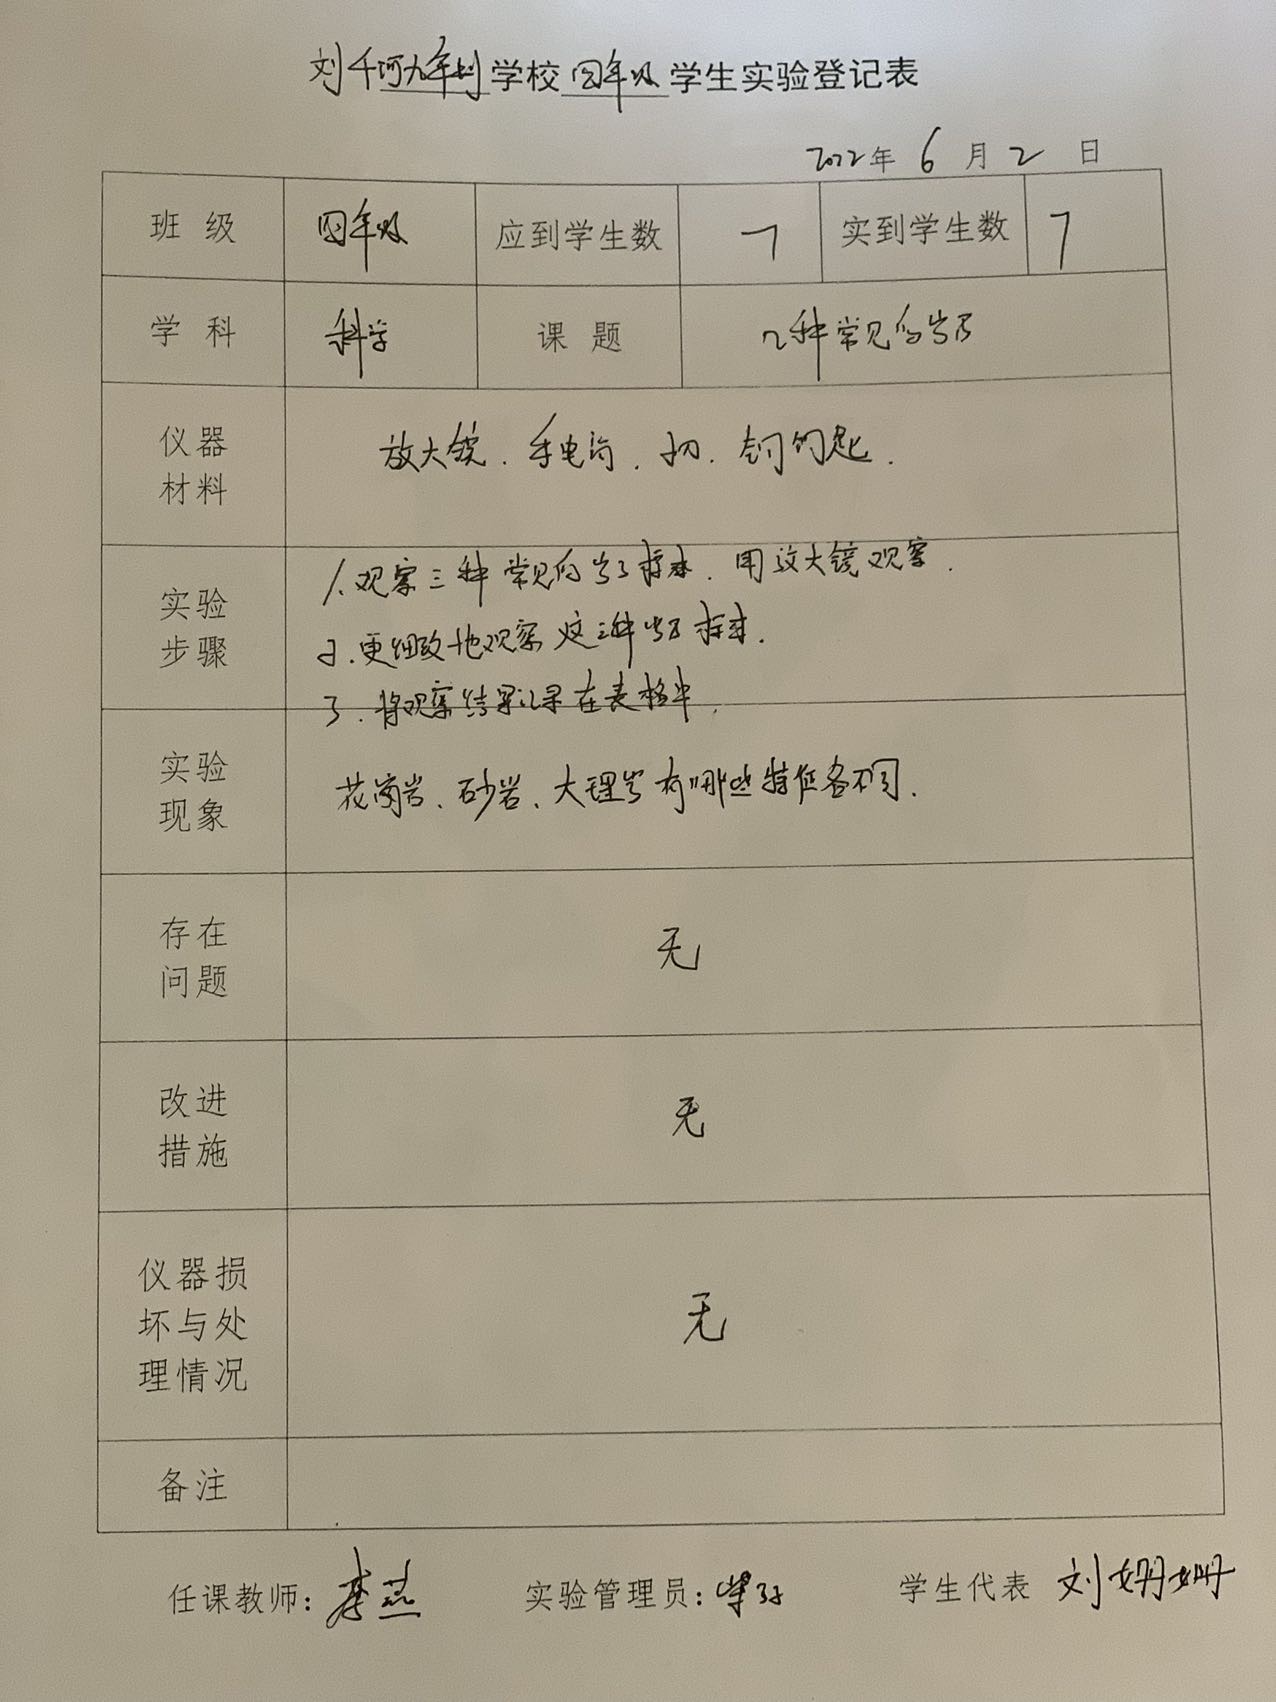 刘千河九年制学校四年级学生实验登记表
2022年 6 月 2 日
班 级 四年级 应到学生数 7 实到学生数 7
学 科 科学 课 题 几种常见的岩石
仪器
材料
放大镜、手电筒、小刀、铜钥匙.
实验
步骤
1.观察三种常见的岩石标本、用放大镜观察.
2.更细致地观察这三种岩石标本.
3.将观察结果记录在表格中.
实验
现象
花岗岩、砂岩、大理岩有哪些特征各不同.
存在
问题
无
改进
措施
无
仪器损
坏与处
理情况
无
备注
任课教师: 李燕 实验管理员: 学生代表 刘姗姗